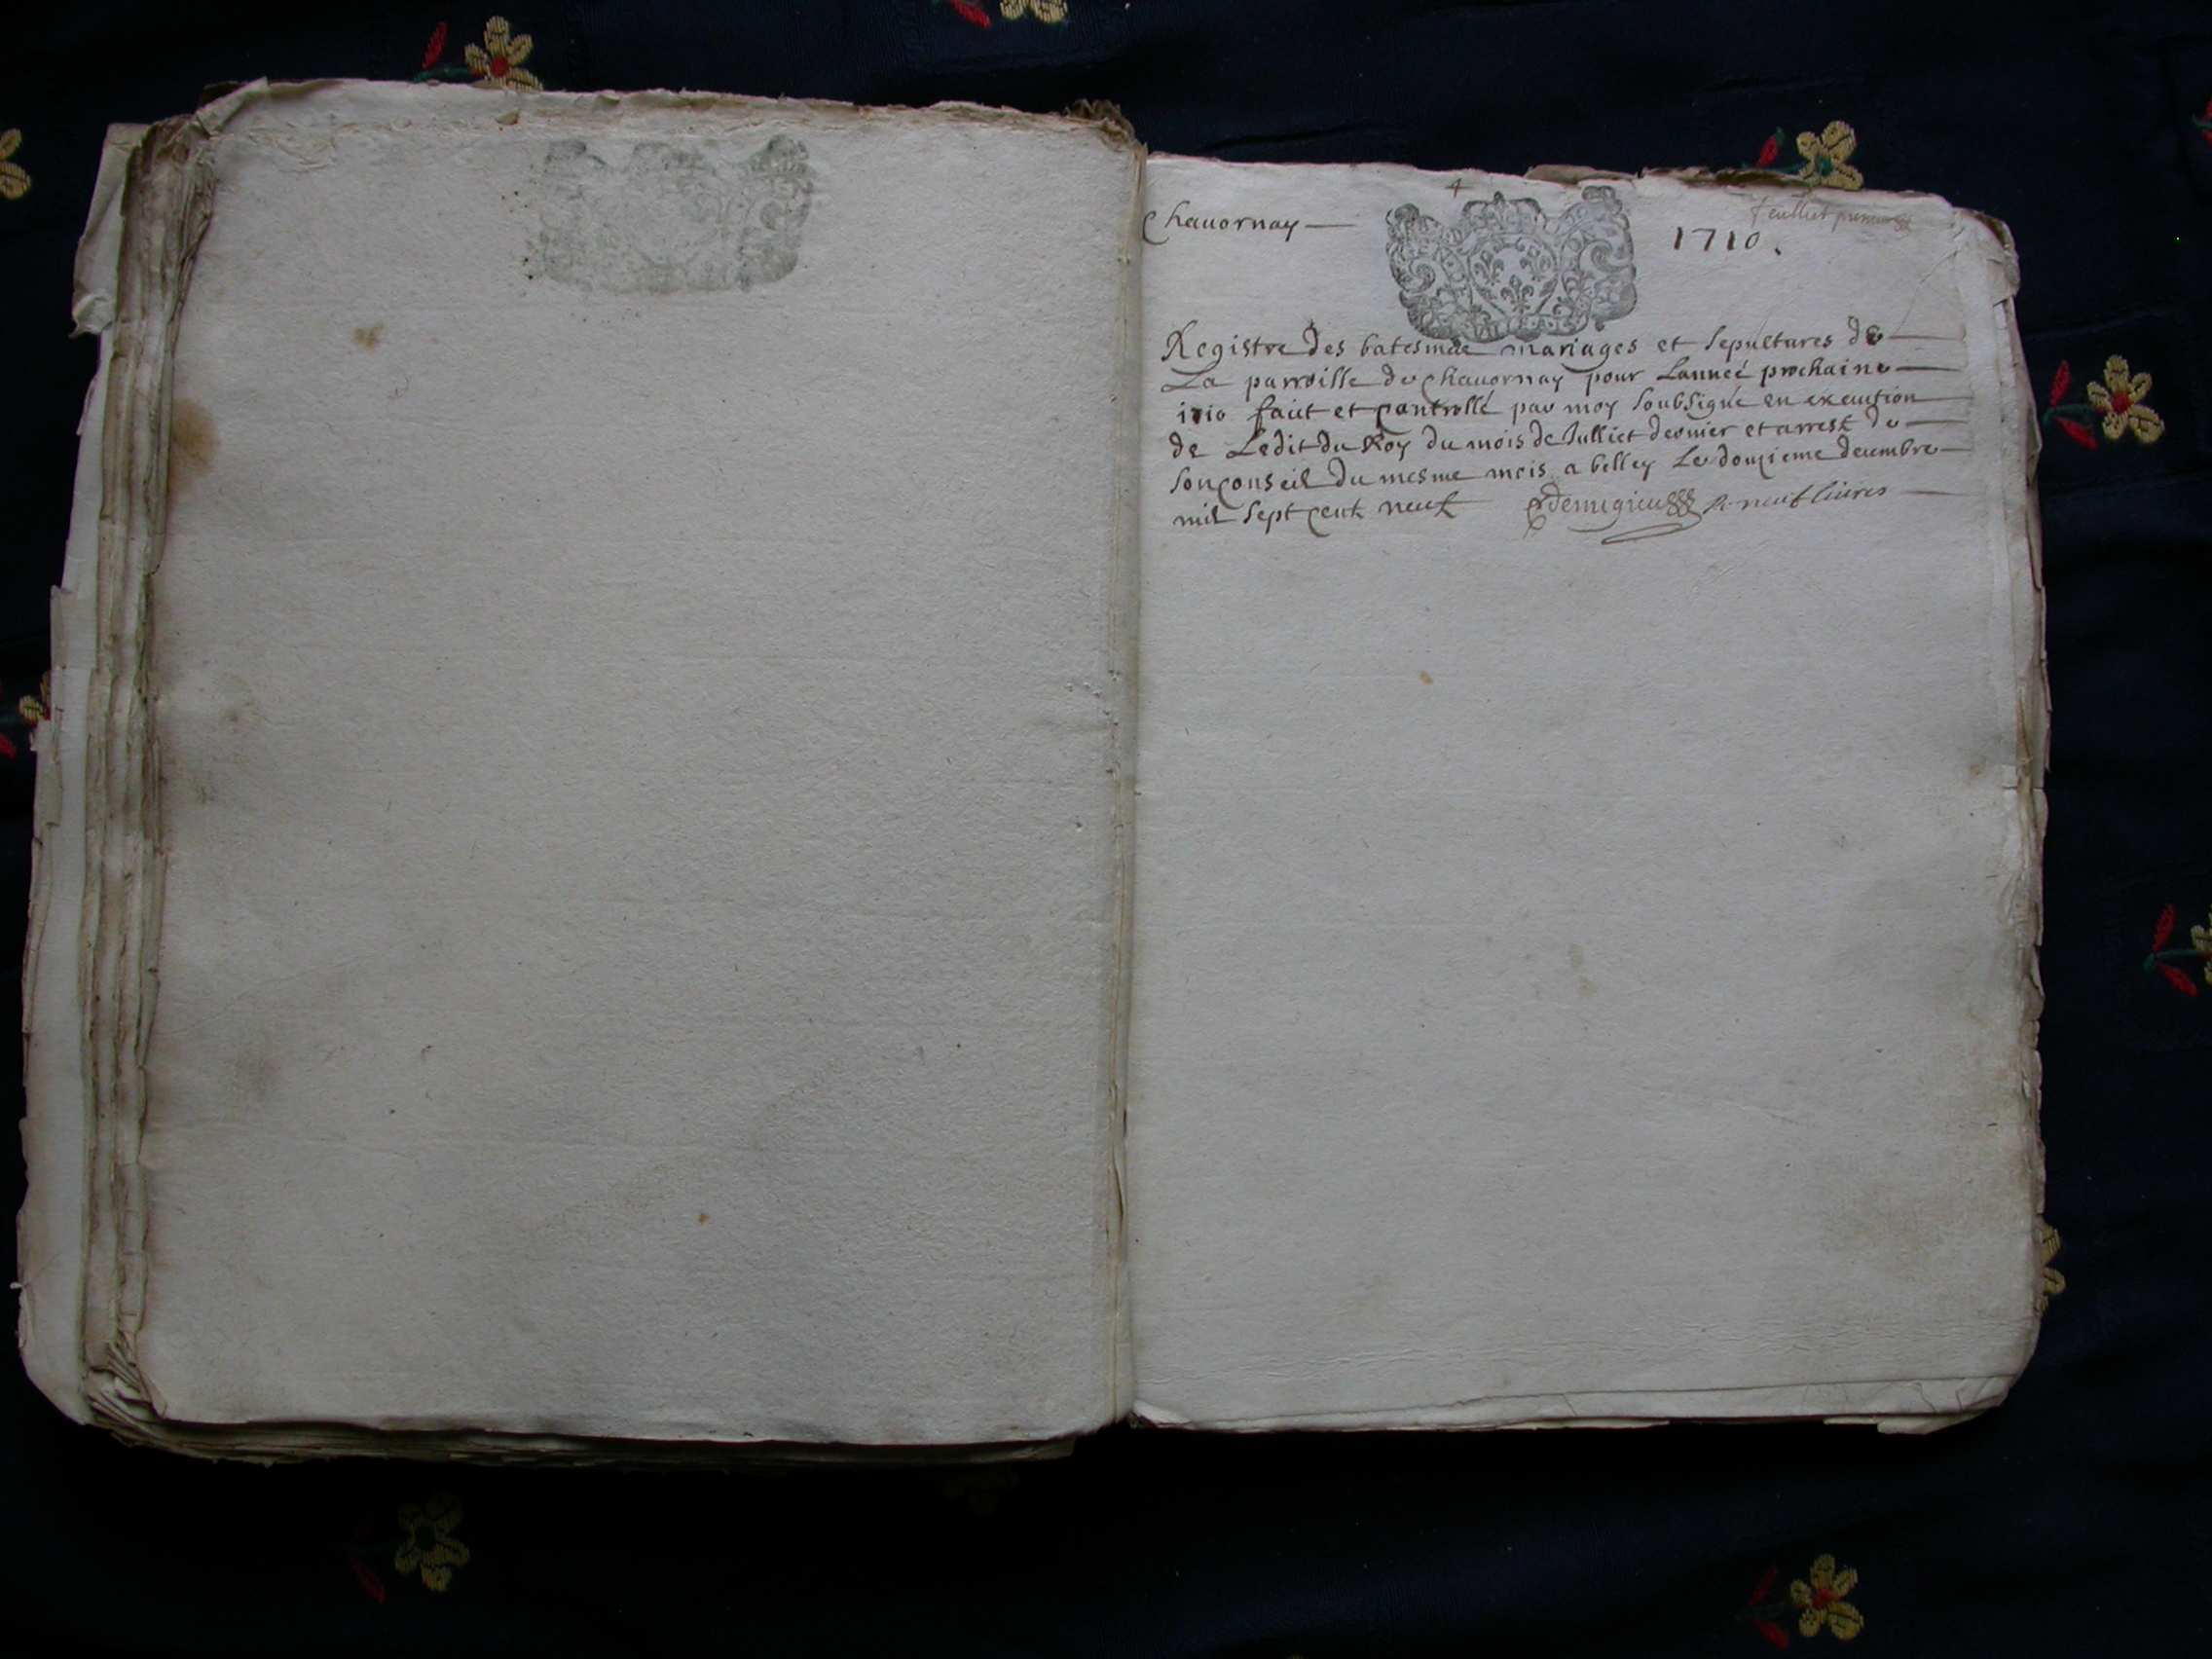 Chauornay
1710.
feulliet premier
Registre des batesmae mariages et sepultures de
La parroisse de Chauornay pour Lanneé prochaine
1710 faict et controllé par moy soubsigné en execution
de Ledit du Roy du mois de Julliet dernier et arrest de
son conseil du mesme mois a belley Le douzieme decembre
mil sept cent neuf R neuf liures